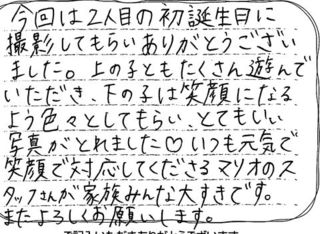 今回は2人目の初誕生日に
撮影してもらいありがとうござい
ました。上の子ともたくさん遊んで
いただき、下の子は笑顔になる
よう色々としてもらい、とてもいい
写真がとれました♡いつも元気で
笑顔で対応してくださるマリオのス
タッフさんが家族みんな大すきです。
またよろしくお願いします。